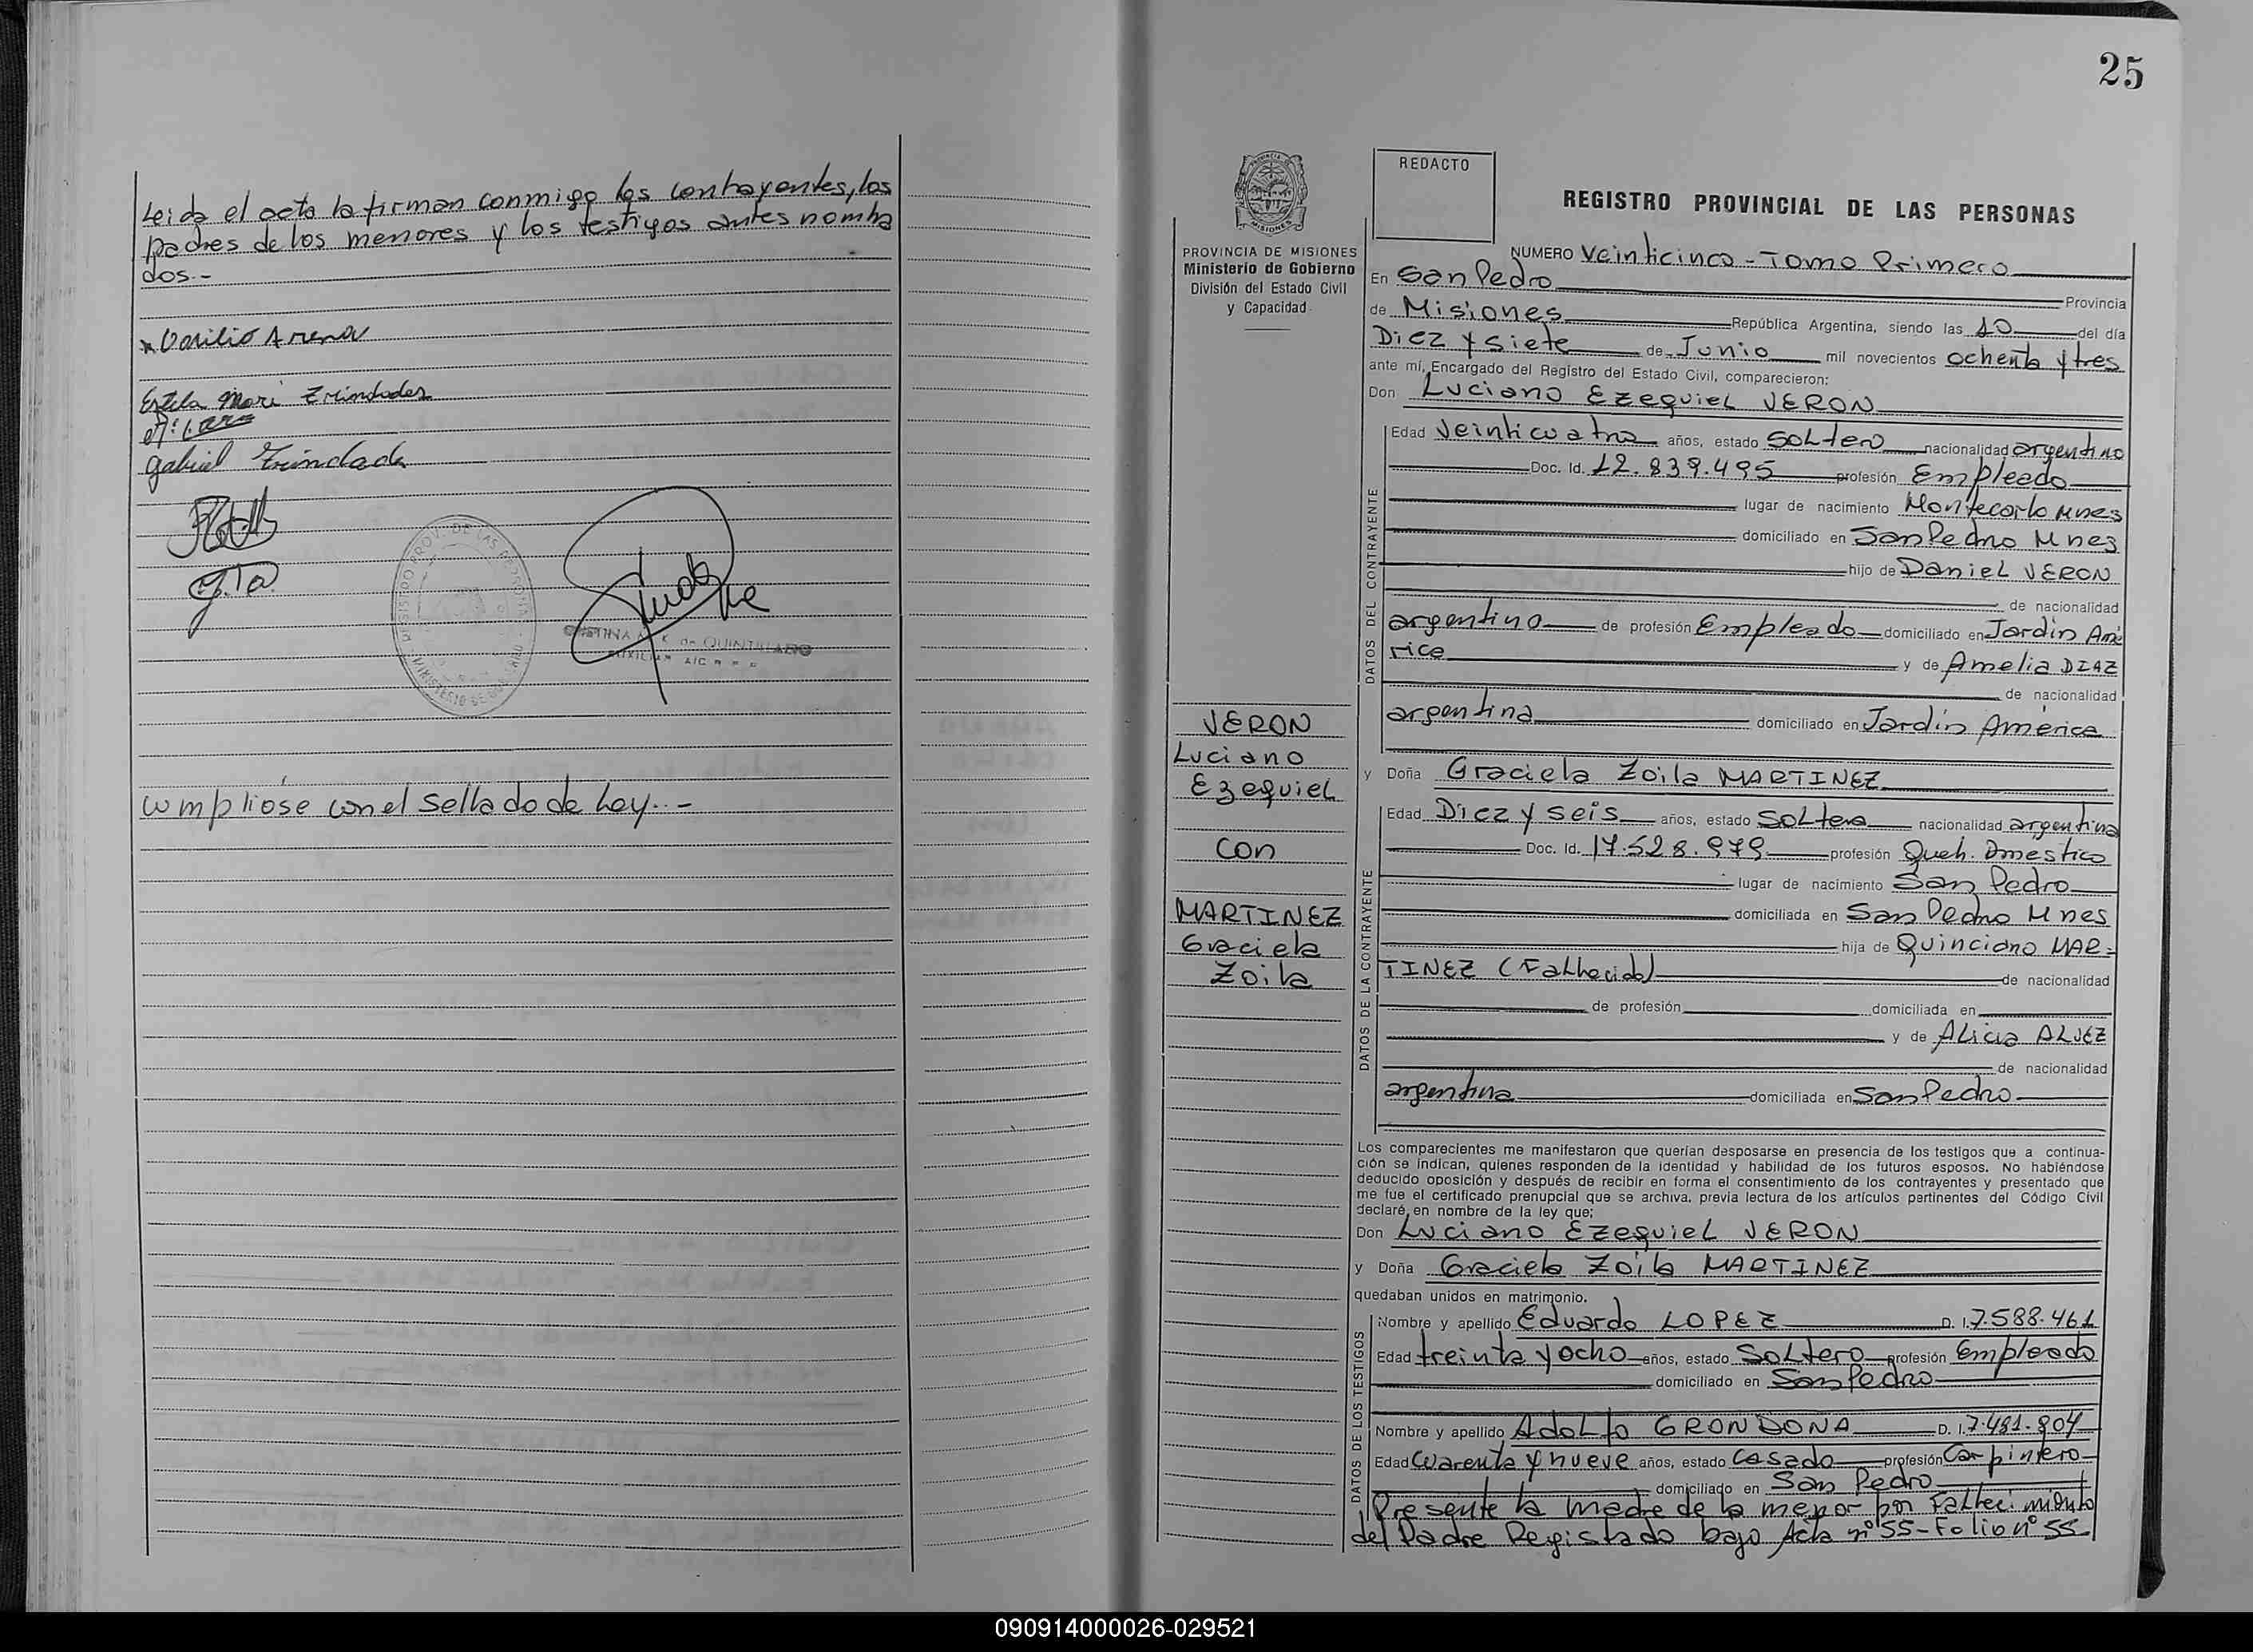 Leida el acta la firman conmigo los contrayentes, los
padres de los menores y los testigos antes nomba
dos.-
Estela Mari Trindades
Gabriel Trindade
REGISTRO PROV. DE LAS PERSONAS
CRISTINA K. de QUINTILIANO
AUXILIAR
cumpliose con el sellado de Ley.-
25
REDACTO
MISIONES
PROVINCIA DE MISIONES
Ministerio de Gobierno
División del Estado Civil
y Capacidad
REGISTRO PROVINCIAL DE LAS PERSONAS
NUMERO Veinticinco - Tomo Primero
En San Pedro Provincia
de Misiones República Argentina, siendo las 10 del día
Diez y siete de Junio mil novecientos ochenta y tres
ante mí, Encargado del Registro del Estado Civil, comparecieron:
Don Luciano Ezequiel VERON
DATOS DEL CONTRAYENTE
Edad Veinticuatro años, estado Soltero nacionalidad argentino
Doc. Id. 12.839.495 profesión Empleado
lugar de nacimiento Montecarlo Mnes
domiciliado en San Pedro Mnes
hijo de Daniel VERON
de nacionalidad
argentino de profesión Empleado domiciliado en Jardin Amé
rica y de Amelia DIAZ
de nacionalidad
argentina domiciliado en Jardin América
VERON
Luciano
Ezequiel
con
MARTINEZ
Graciela
Zoila
y Doña Graciela Zoila MARTINEZ
DATOS DE LA CONTRAYENTE
Edad Diez y seis años, estado Soltera nacionalidad argentina
Doc. Id. 17.528.979 profesión Queh. Domestico
lugar de nacimiento San Pedro
domiciliada en San Pedro Mnes
hija de Quinciano MAR=
TINEZ (Fallecido) de nacionalidad
de profesión domiciliada en
y de Alicia ALVEZ
de nacionalidad
argentina domiciliada en San Pedro
Los comparecientes me manifestaron que querían desposarse en presencia de los testigos que a continua-
ción se indican, quienes responden de la identidad y habilidad de los futuros esposos. No habiéndose
deducido oposición y después de recibir en forma el consentimiento de los contrayentes y presentado que
me fue el certificado prenupcial que se archiva, previa lectura de los artículos pertinentes del Código Civil
declaré, en nombre de la ley que;
Don Luciano Ezequiel VERON
y Doña Graciela Zoila MARTINEZ
quedaban unidos en matrimonio.
DATOS DE LOS TESTIGOS
Nombre y apellido Eduardo LOPEZ D. I. 7.588.461
Edad treinta y ocho años, estado Soltero profesión Empleado
domiciliado en San Pedro
Nombre y apellido Adolfo GRONDONA D. I. 7.481.804
Edad Cuarenta y nueve años, estado Casado profesión Carpintero
domiciliado en San Pedro
Presente la madre de la menor por Fallecimiento
del Padre Registrado bajo Acta nº 55 - Folio nº 55
090914000026-029521